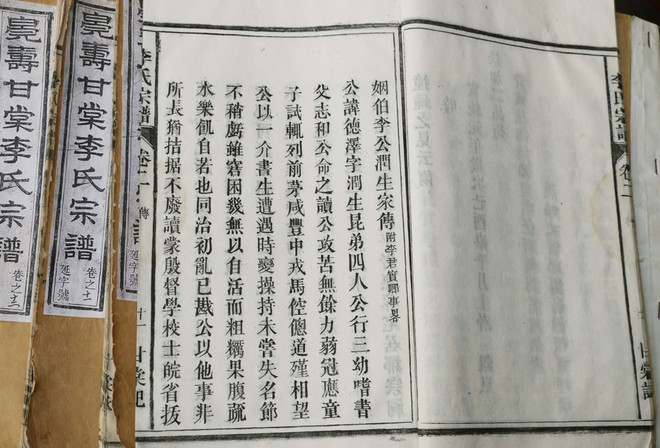 李氏宗譜
卷二
姻伯李公潤生家傳 附李君寅卿事畧
公諱德澤字潤生昆弟四人公行三幼嗜書
父志和公命之讀公攻苦無餘力弱冠應童
子試輒列前茅咸豐中戎馬倥傯道殣相望
公以一介書生遭遇時變操持未嘗失名節
不稍虧雖窘困幾無以自活而粗糲果腹疏
水樂飢自若也同治初亂已戡公以他事非
所長猶拮据不廢讀蒙殷督學校士皖省拔
李氏宗譜
卷二 傳
十一 甘棠
壽甘棠李氏宗譜
卷之十一
延字號
壽甘棠李氏宗譜
卷之十二
延字號